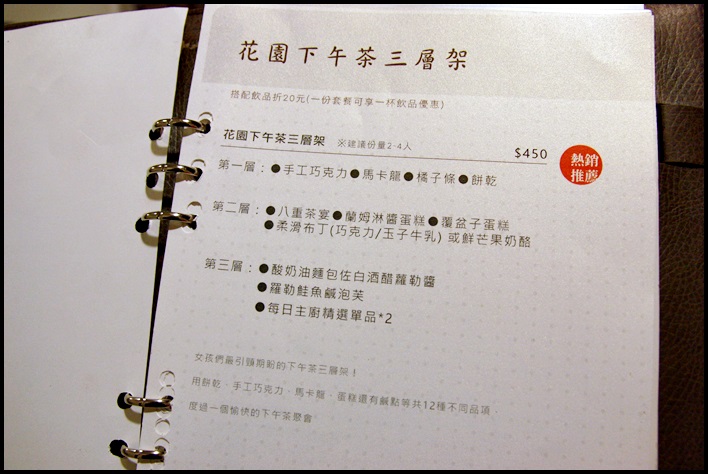 花園下午茶三層架
搭配飲品折20元(一份套餐可享一杯飲品優惠)
花園下午茶三層架 ※建議份量2-4人 $450
熱銷
推薦
第一層：●手工巧克力●馬卡龍●橘子條●餅乾
第二層：●八重茶宴●蘭姆淋醬蛋糕●覆盆子蛋糕
●柔滑布丁(巧克力/玉子牛乳) 或鮮芒果奶酪
第三層：●酸奶油麵包佐白酒醋蘿勒醬
●羅勒鮭魚鹹泡芙
●每日主廚精選單品*2
女孩們最引頸期盼的下午茶三層架！
用餅乾、手工巧克力、馬卡龍、蛋糕還有鹹點等共12種不同品項
度過一個愉快的下午茶聚會